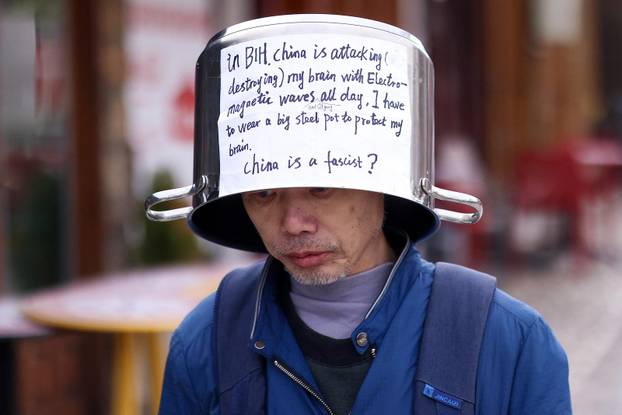 in BIH, China is attacking (
destroying) my brain with Electro-
magnetic waves all day, I have
to wear a big steel pot to protect my
brain.
China is a fascist?
JINCAIZI